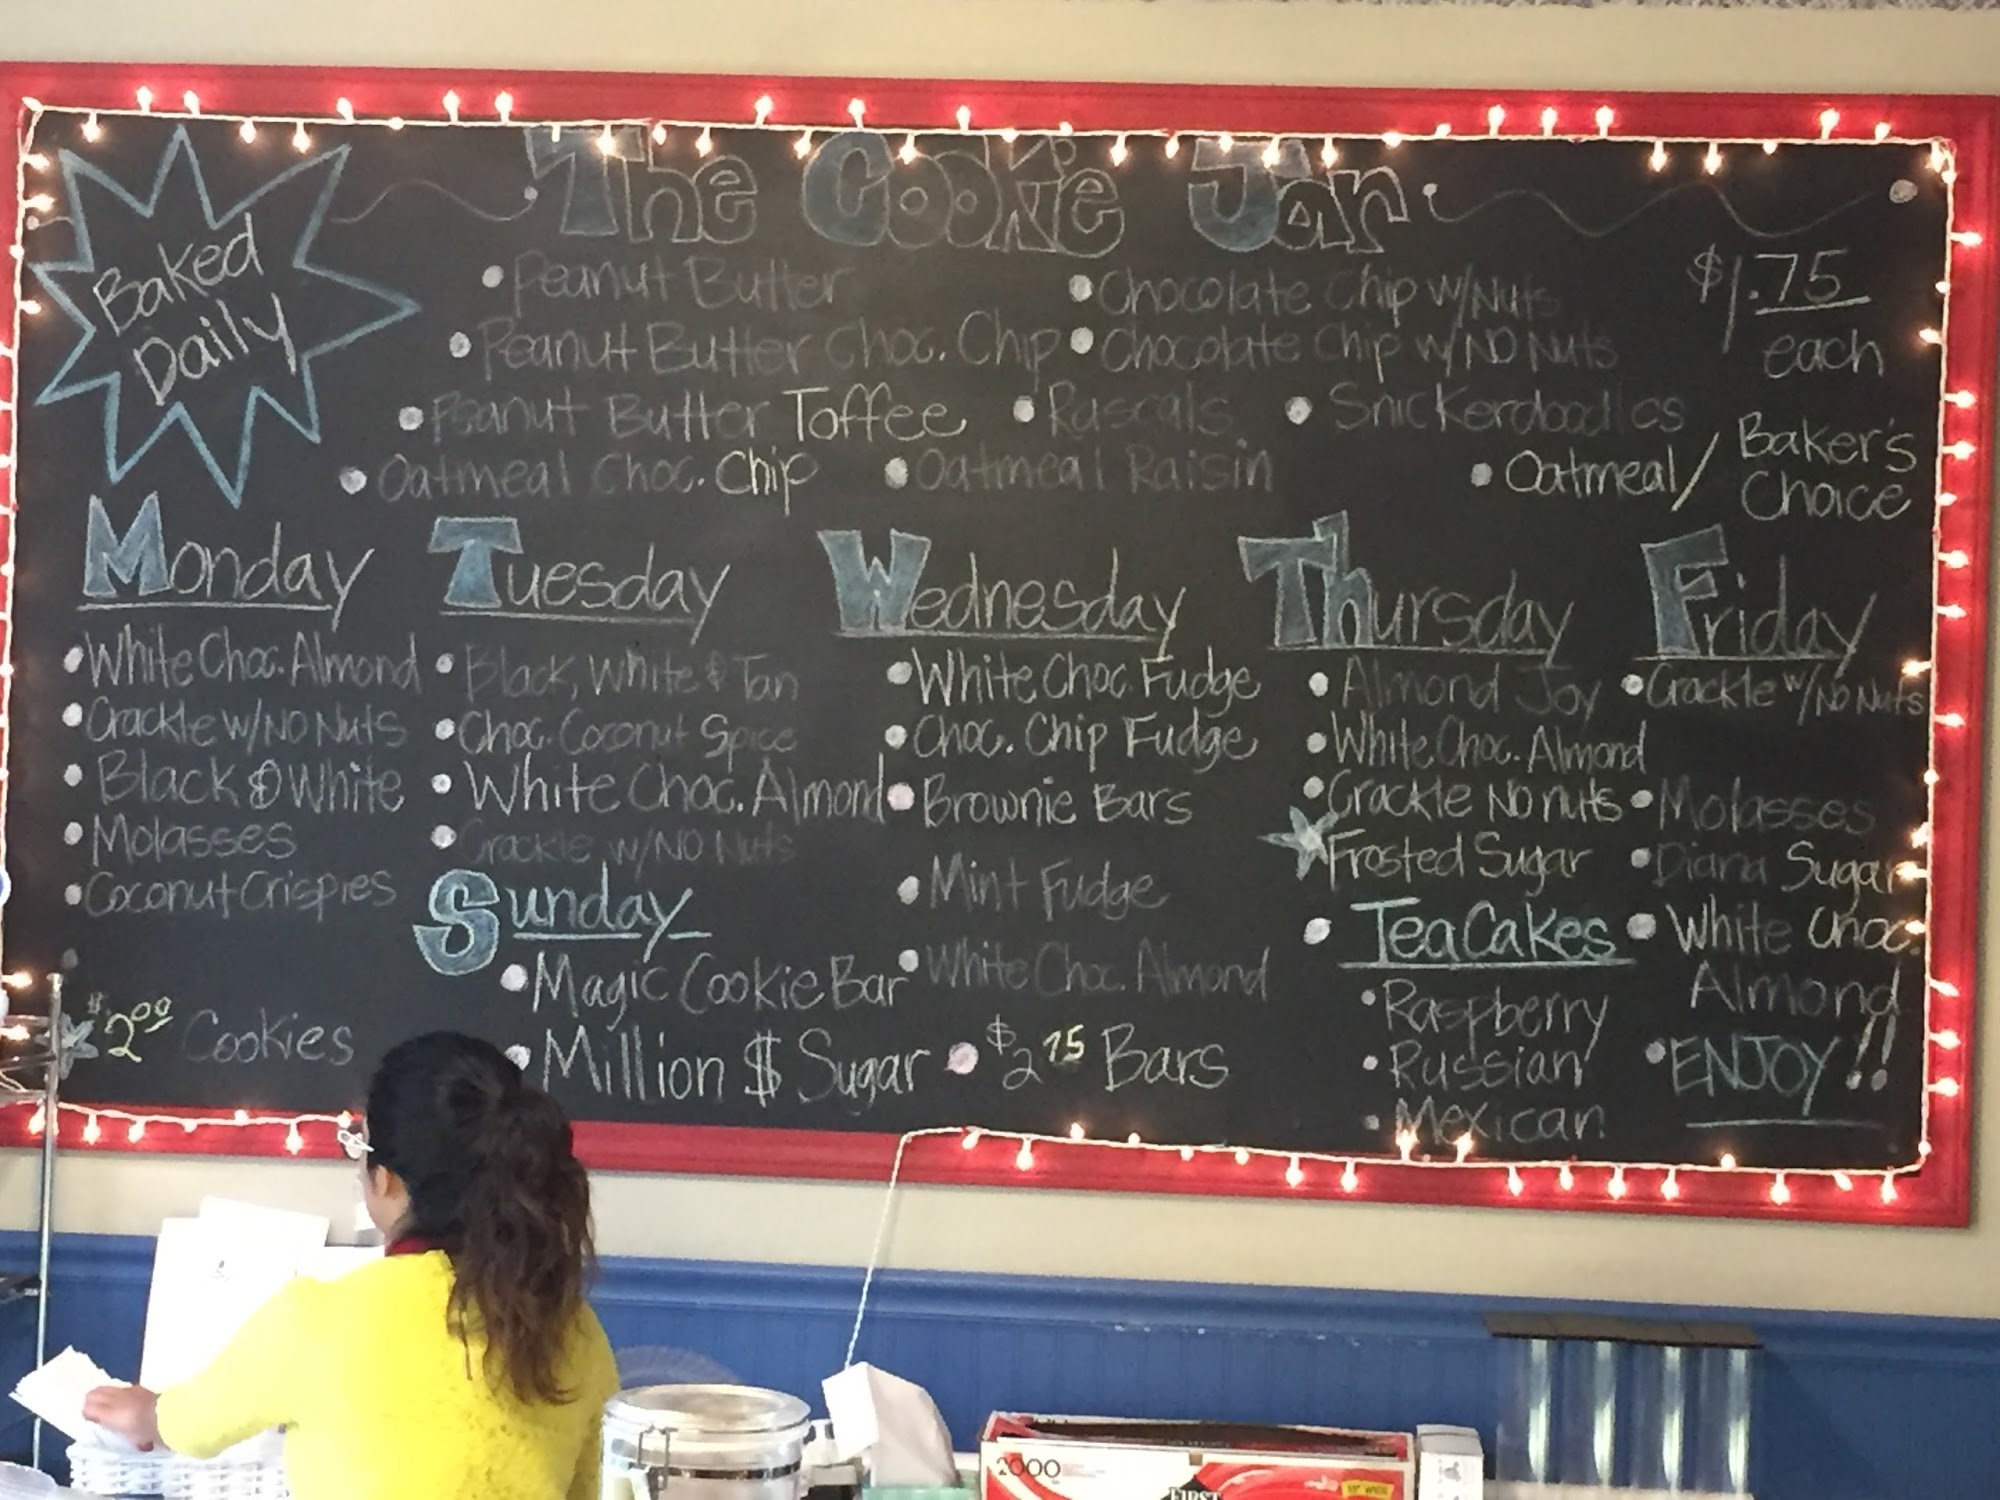 The Cookie Jar
Baked
Daily
• Peanut Butter
• Chocolate Chip w/Nuts
$1.75
each
• Peanut Butter Choc. Chip
• Chocolate Chip w/NO Nuts
• Peanut Butter Toffee
• Rascals
• Snickerdoodles
• Oatmeal Choc. Chip
• Oatmeal Raisin
• Oatmeal/
Baker's
Choice
Monday
• White Choc. Almond
• Crackle w/NO Nuts
• Black & White
• Molasses
• Coconut Crispies
$2.00 Cookies
Tuesday
• Black, White & Tan
• Choc. Coconut Spice
• White Choc. Almond
• Crackle w/NO Nuts
Sunday
• Magic Cookie Bar
• Million $ Sugar
Wednesday
• White Choc. Fudge
• Choc. Chip Fudge
• Brownie Bars
• Mint Fudge
• White Choc. Almond
• $2.75 Bars
Thursday
• Almond Joy
• White Choc. Almond
• Crackle No nuts
Frosted Sugar
• TeaCakes
• Raspberry
• Russian
• Mexican
Friday
• Crackle w/No Nuts
• Molasses
• Diana Sugar
• White Choc.
Almond
• ENJOY!!
2000
FIRST